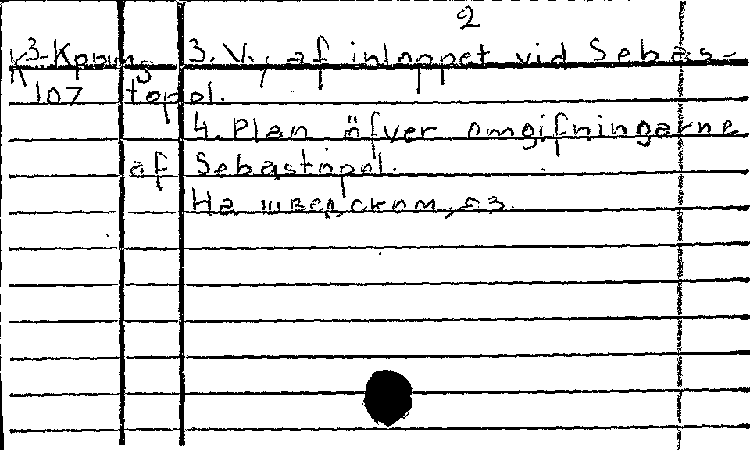 2
К3-Крын 3. V., af inloppet vid Sebas-
К 107 topol.
4. Plan öfver omgifningarne
af Sebastopol.
На шведском, яз.